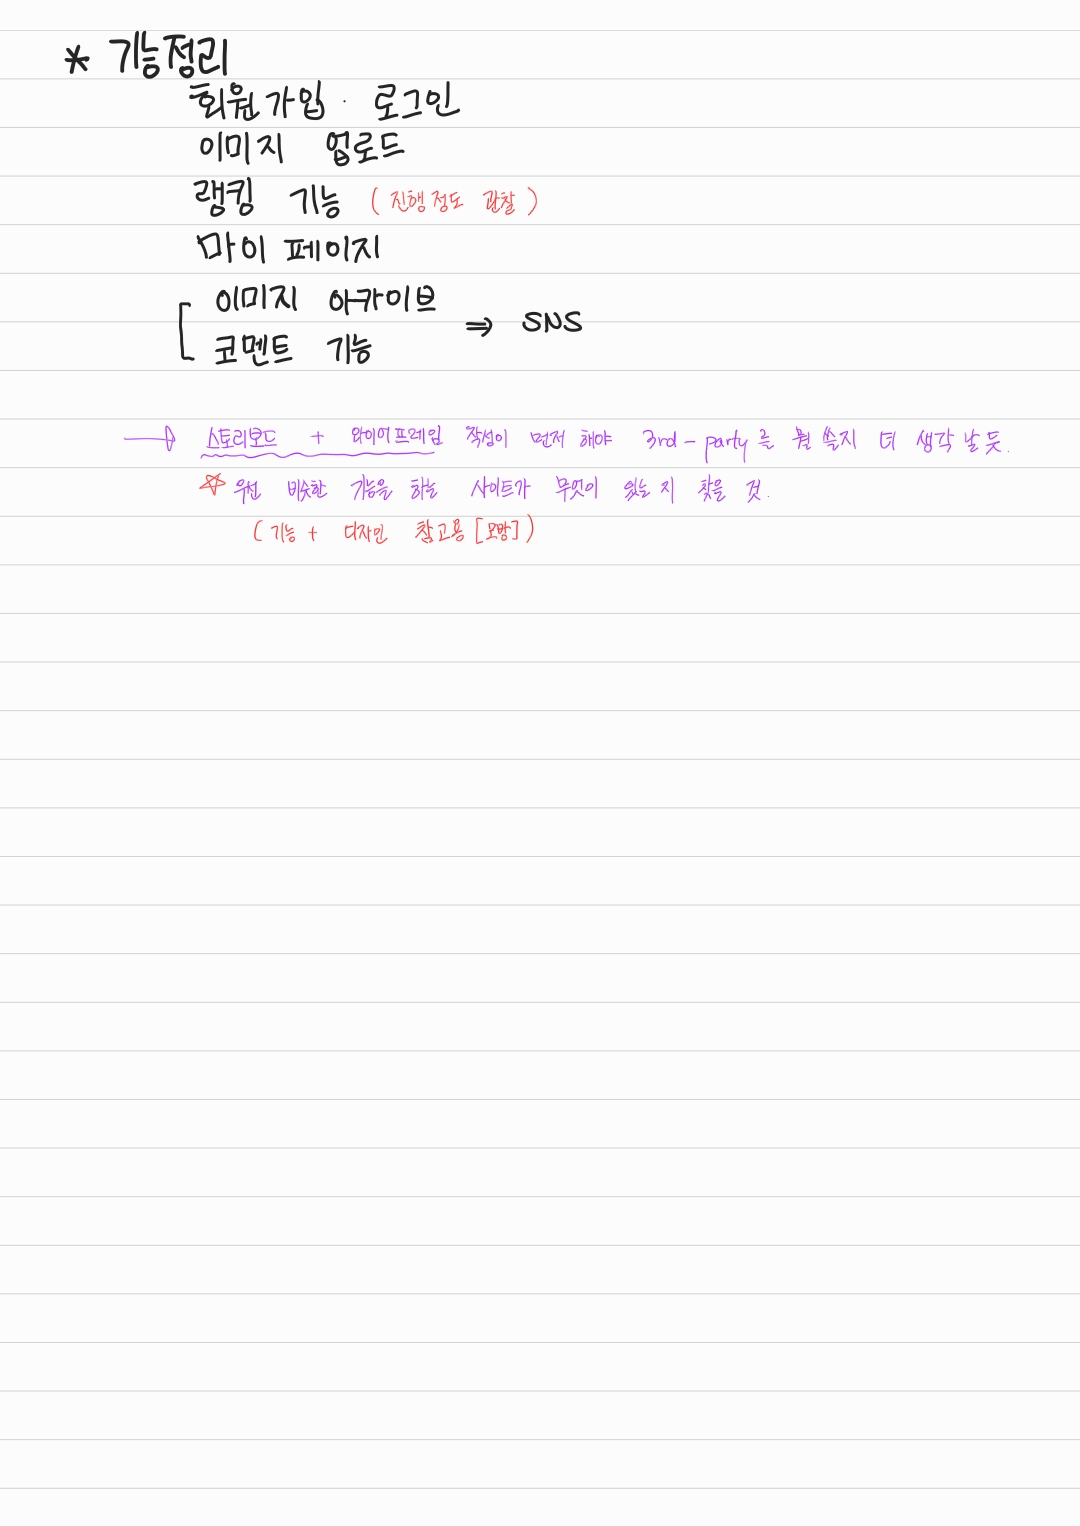 * 기능정리
회원가입 · 로그인
이미지 업로드
랭킹 기능 (진행정도 관찰)
마이 페이지
이미지 아카이브
코멘트 기능 ⇒ SNS
→ 스토리보드 + 와이어프레임 작성이 먼저 해야 3rd-party를 뭘 쓸지 더 생각 날 듯.
☆ 우선 비슷한 기능을 하는 사이트가 무엇이 있는 지 찾을 것.
(기능 + 디자인 참고용 [모방])